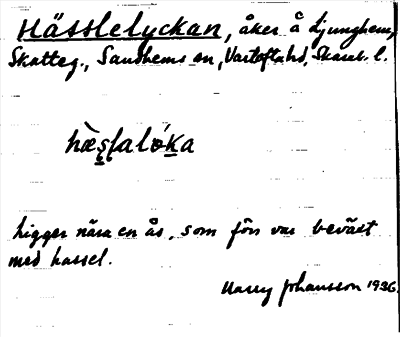 Hässlelyckan, åker å Ljunghem,
Skatteg., Sandhems sn, Vartofta hd, Skarab. l.
hæ̀ṣḷalǿḵa
Ligger nära en ås, som förr var beväxt
med hassel.
Harry Johansson 1936.